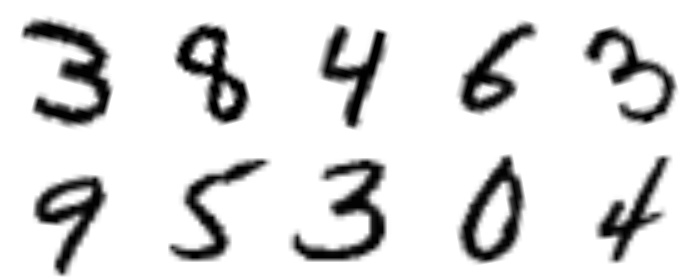 3 8 4 6 3
9 5 3 0 4